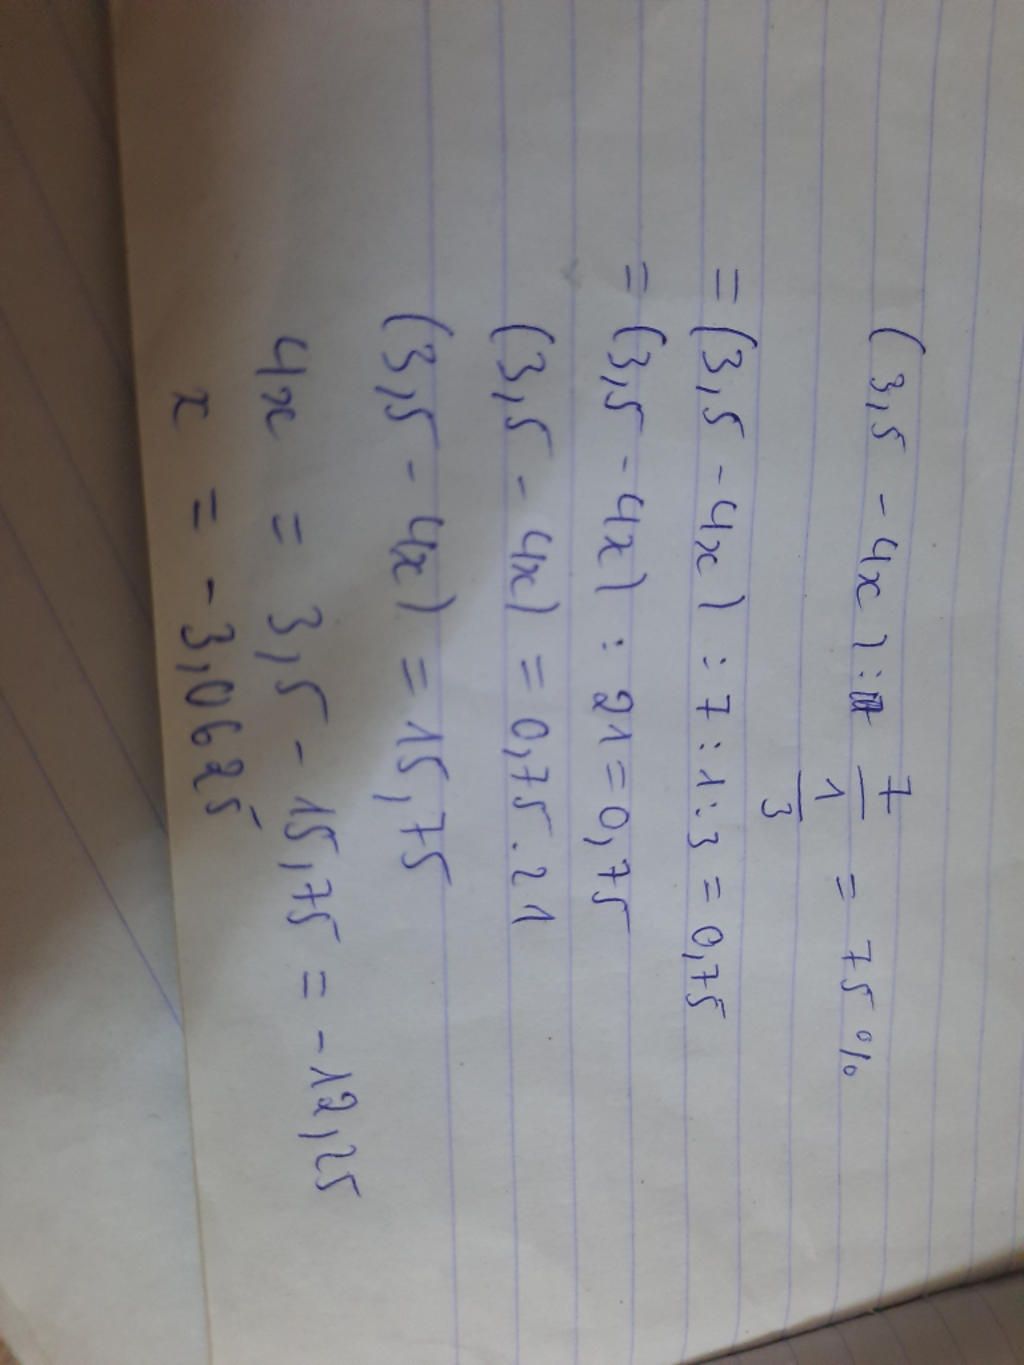 (3,5 - 4x) : 7/1/3 = 75%
= (3,5 - 4x) : 7 : 1 : 3 = 0,75
= (3,5 - 4x) : 21 = 0,75
(3,5 - 4x) = 0,75 . 21
(3,5 - 4x) = 15,75
4x = 3,5 - 15,75 = -12,25
x = -3,0625